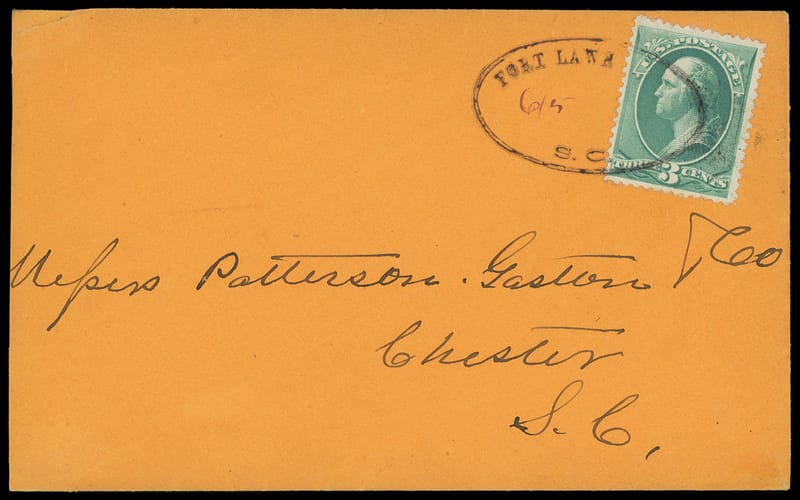 FORT LAWN
6/5
S.C.
U.S. POSTAGE
THREE 3 CENTS
Messrs Patterson. Gaston & Co
Chester
S.C.